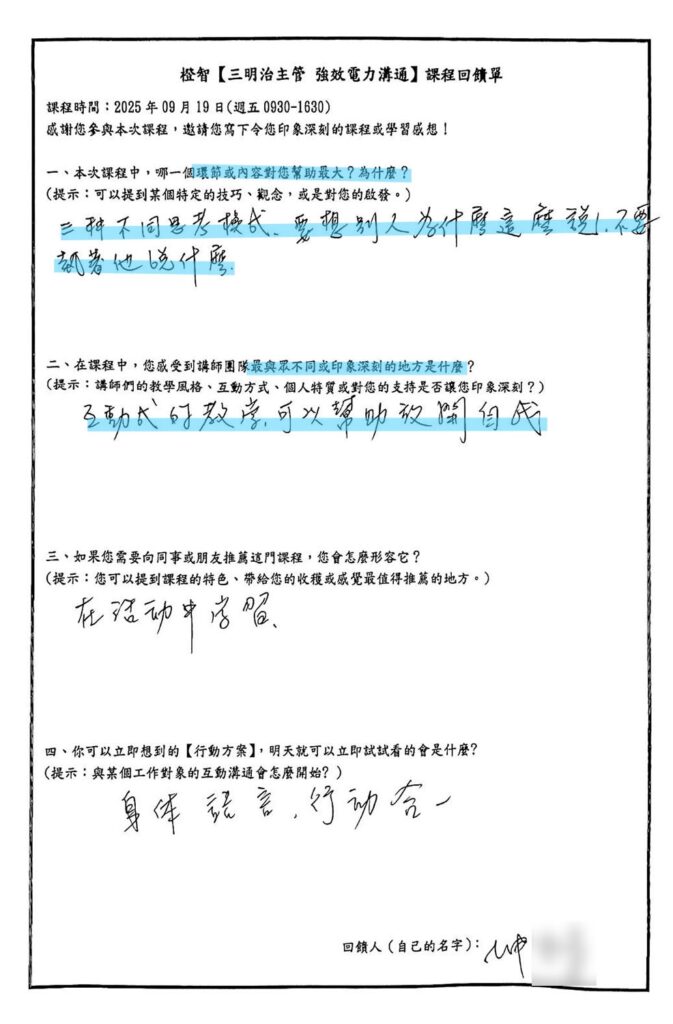 橙智【三明治主管 強效電力溝通】課程回饋單
課程時間：2025 年 09 月 19 日(週五 0930-1630)
感謝您參與本次課程，邀請您寫下令您印象深刻的課程或學習感想！
一、本次課程中，哪一個環節或內容對您幫助最大？為什麼？
(提示：可以提到某個特定的技巧、觀念，或是對您的啟發。)
三种不同思考模式、要想別人為什麼這麼說，不要
執著他說什麼.
二、在課程中，您感受到講師團隊最與眾不同或印象深刻的地方是什麼？
(提示：講師們的教學風格、互動方式、個人特質或對您的支持是否讓您印象深刻？)
互動式的教学,可以幫助放開自我
三、如果您需要向同事或朋友推薦這門課程，您會怎麼形容它？
(提示：您可以提到課程的特色、帶給您的收穫或感覺最值得推薦的地方。)
在活动中学習、
四、你可以立即想到的【行動方案】，明天就可以立即試試看的會是什麼?
(提示：與某個工作對象的互動溝通會怎麼開始？)
身体語言、行动合一
回饋人（自己的名字）：